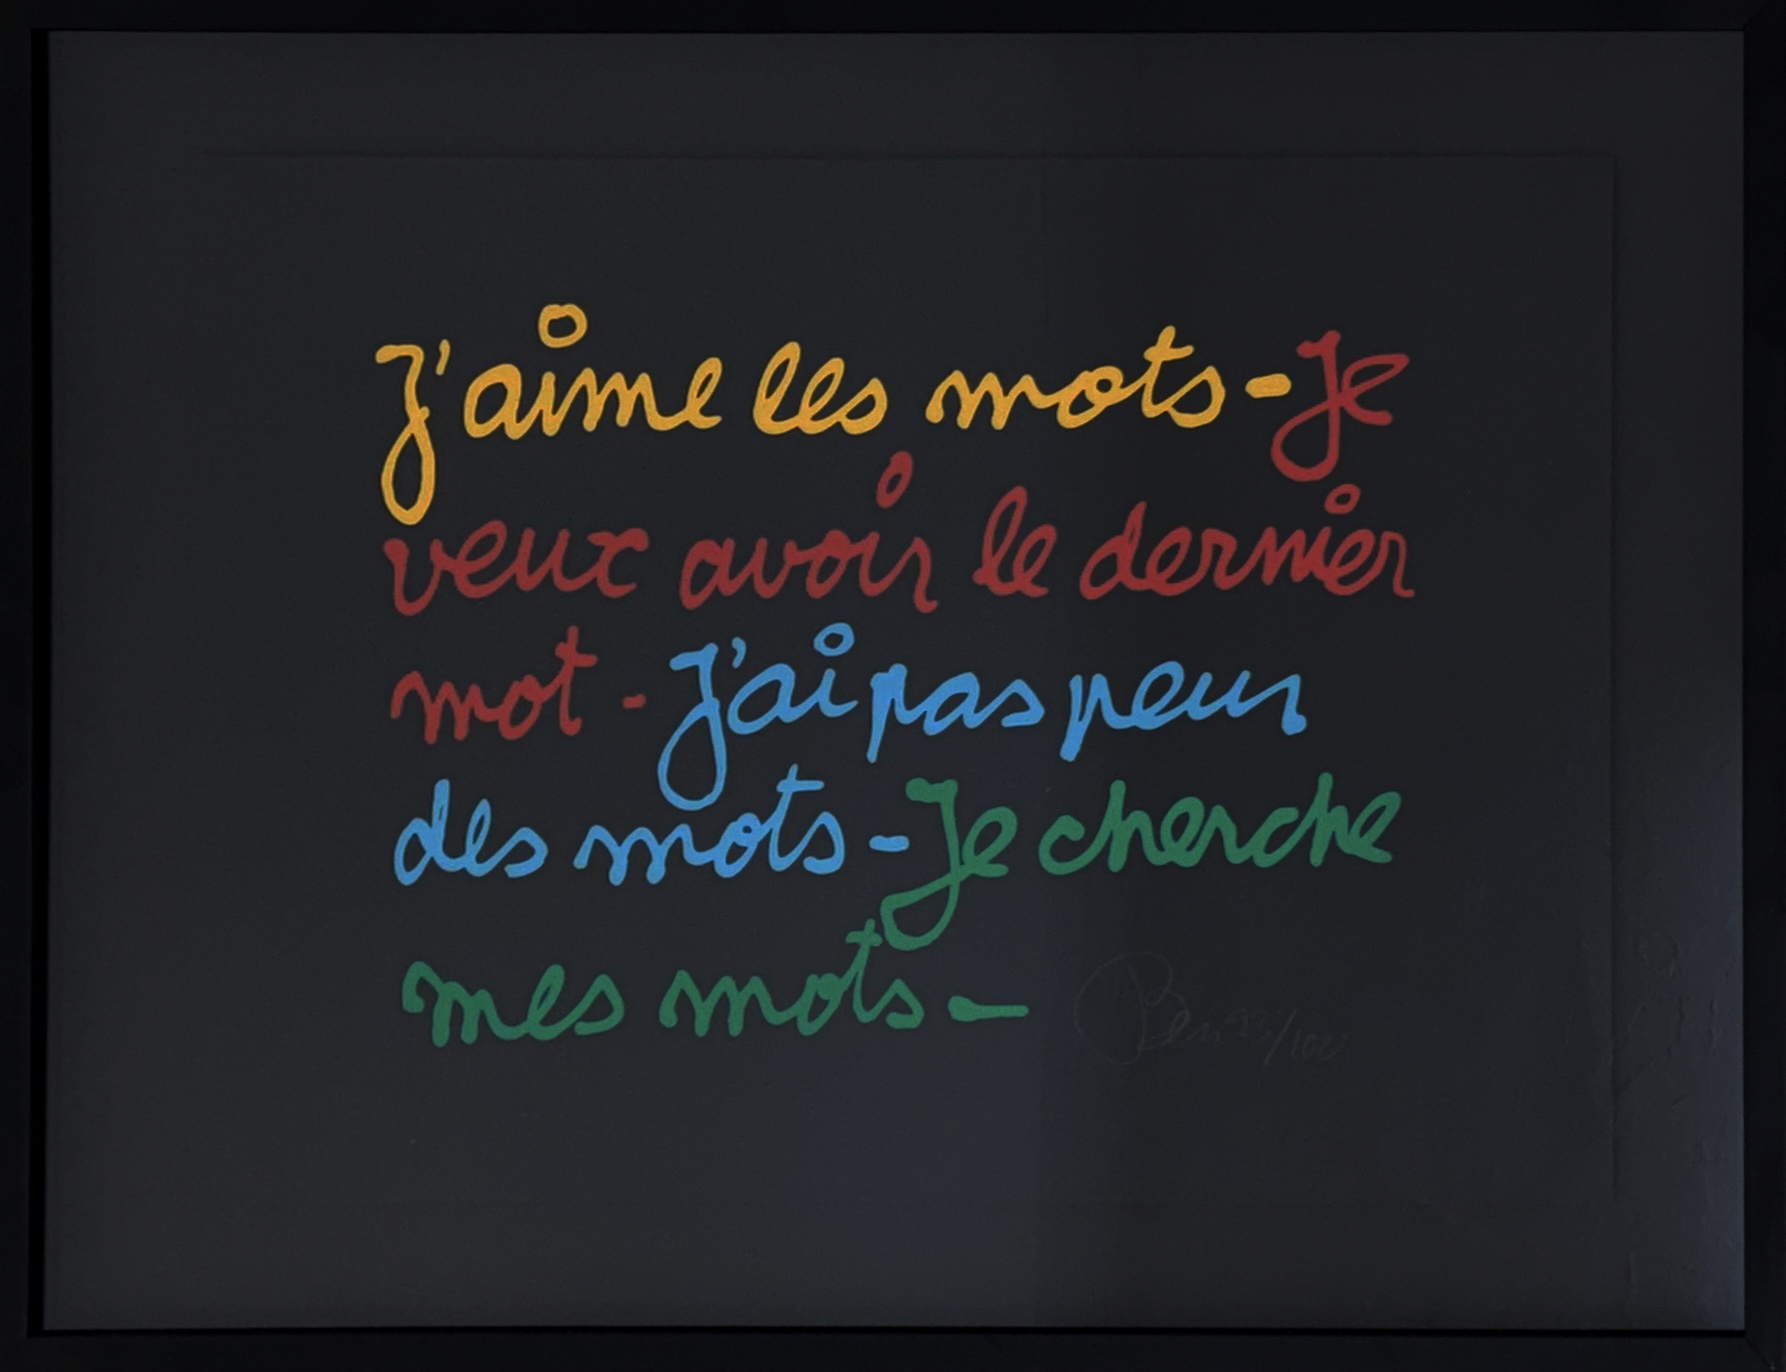 J'aime les mots - Je
veux avoir le dernier
mot - J'ai pas peur
des mots - Je cherche
mes mots -
Ben /100